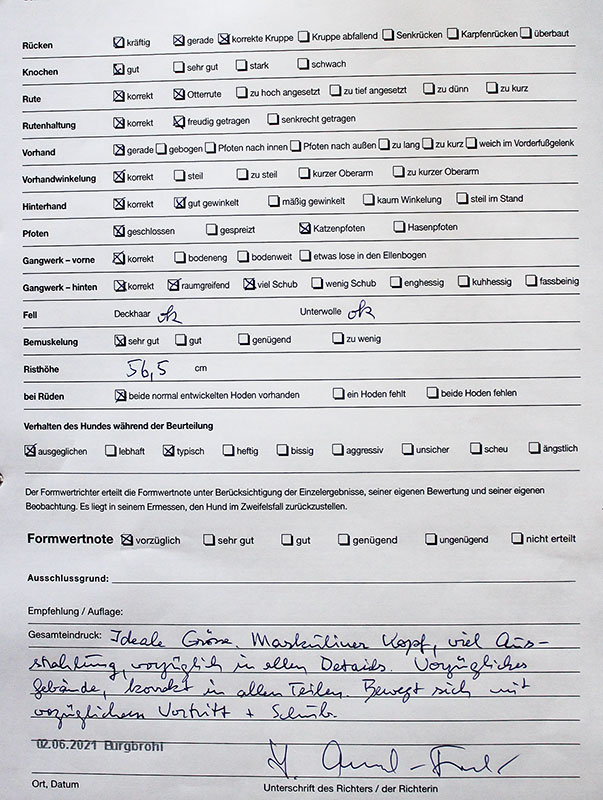 Rücken ☒ kräftig ☒ gerade ☒ korrekte Kruppe ☐ Kruppe abfallend ☐ Senkrücken ☐ Karpfenrücken ☐ überbaut
Knochen ☒ gut ☐ sehr gut ☐ stark ☐ schwach
Rute ☒ korrekt ☒ Otterrute ☐ zu hoch angesetzt ☐ zu tief angesetzt ☐ zu dünn ☐ zu kurz
Rutenhaltung ☒ korrekt ☒ freudig getragen ☐ senkrecht getragen
Vorhand ☒ gerade ☐ gebogen ☐ Pfoten nach innen ☐ Pfoten nach außen ☐ zu lang ☐ zu kurz ☐ weich im Vorderfußgelenk
Vorhandwinkelung ☒ korrekt ☐ steil ☐ zu steil ☐ kurzer Oberarm ☐ zu kurzer Oberarm
Hinterhand ☒ korrekt ☒ gut gewinkelt ☐ mäßig gewinkelt ☐ kaum Winkelung ☐ steil im Stand
Pfoten ☒ geschlossen ☐ gespreizt ☒ Katzenpfoten ☐ Hasenpfoten
Gangwerk – vorne ☒ korrekt ☐ bodeneng ☐ bodenweit ☐ etwas lose in den Ellenbogen
Gangwerk – hinten ☒ korrekt ☒ raumgreifend ☒ viel Schub ☐ wenig Schub ☐ enghessig ☐ kuhhessig ☐ fassbeinig
Fell Deckhaar ok Unterwolle ok
Bemuskelung ☒ sehr gut ☐ gut ☐ genügend ☐ zu wenig
Risthöhe 56,5 cm
bei Rüden ☒ beide normal entwickelten Hoden vorhanden ☐ ein Hoden fehlt ☐ beide Hoden fehlen
Verhalten des Hundes während der Beurteilung
☒ ausgeglichen ☐ lebhaft ☒ typisch ☐ heftig ☐ bissig ☐ aggressiv ☐ unsicher ☐ scheu ☐ ängstlich
Der Formwertrichter erteilt die Formwertnote unter Berücksichtigung der Einzelergebnisse, seiner eigenen Bewertung und seiner eigenen
Beobachtung. Es liegt in seinem Ermessen, den Hund im Zweifelsfall zurückzustellen.
Formwertnote ☒ vorzüglich ☐ sehr gut ☐ gut ☐ genügend ☐ ungenügend ☐ nicht erteilt
Ausschlussgrund:
Empfehlung / Auflage:
Gesamteindruck: Ideale Grösse. Maskuliner Kopf, viel Aus-
strahlung, vorzüglich in allen Details. Vorzügliches
Gebäude, korrekt in allen Teilen. Bewegt sich mit
vorzüglichem Vortritt + Schub.
02.06.2021 Burgbrohl
Ort, Datum Unterschrift des Richters / der Richterin